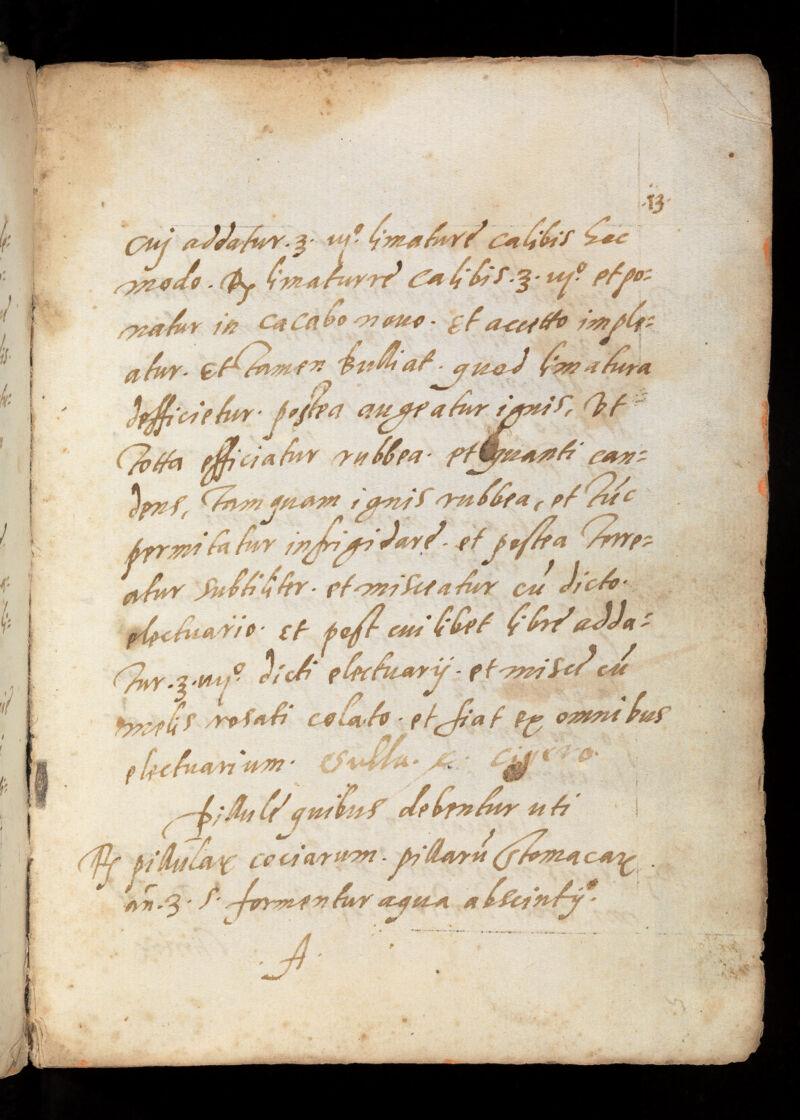 .13.
Cuj addatur. ʒ. vijº. limaturẽ calibis hoc
modo. ℞ limaturrẽ calibis. ʒ. vijº. et po=
natur in cacabo nouo. Et accetto imple=
atur. Et tamen bulliat. quod limatura
defficietur. postea augeatur ignis, Vt
totta efficiatur rubbea. et quanti can=
dens, tamquam ignis rubbea, et tũc
permitatur infrigidarẽ. et postea terre=
atur subtiliter. et misceatur cũ dicto.
electuario. Et post cuilibet librẽ adda=
tur. ʒ. vijº. dicti electuarij. et miscẽ cũ
melis rosati colato. et fiat ex omnibus
electuarium.
Pillulẽ quibus debentur uti
℞ pillulaꝝ cociarum. pillarũ stomacaꝝ
añ. ʒ. s. formentur aqua abscintijº.
A